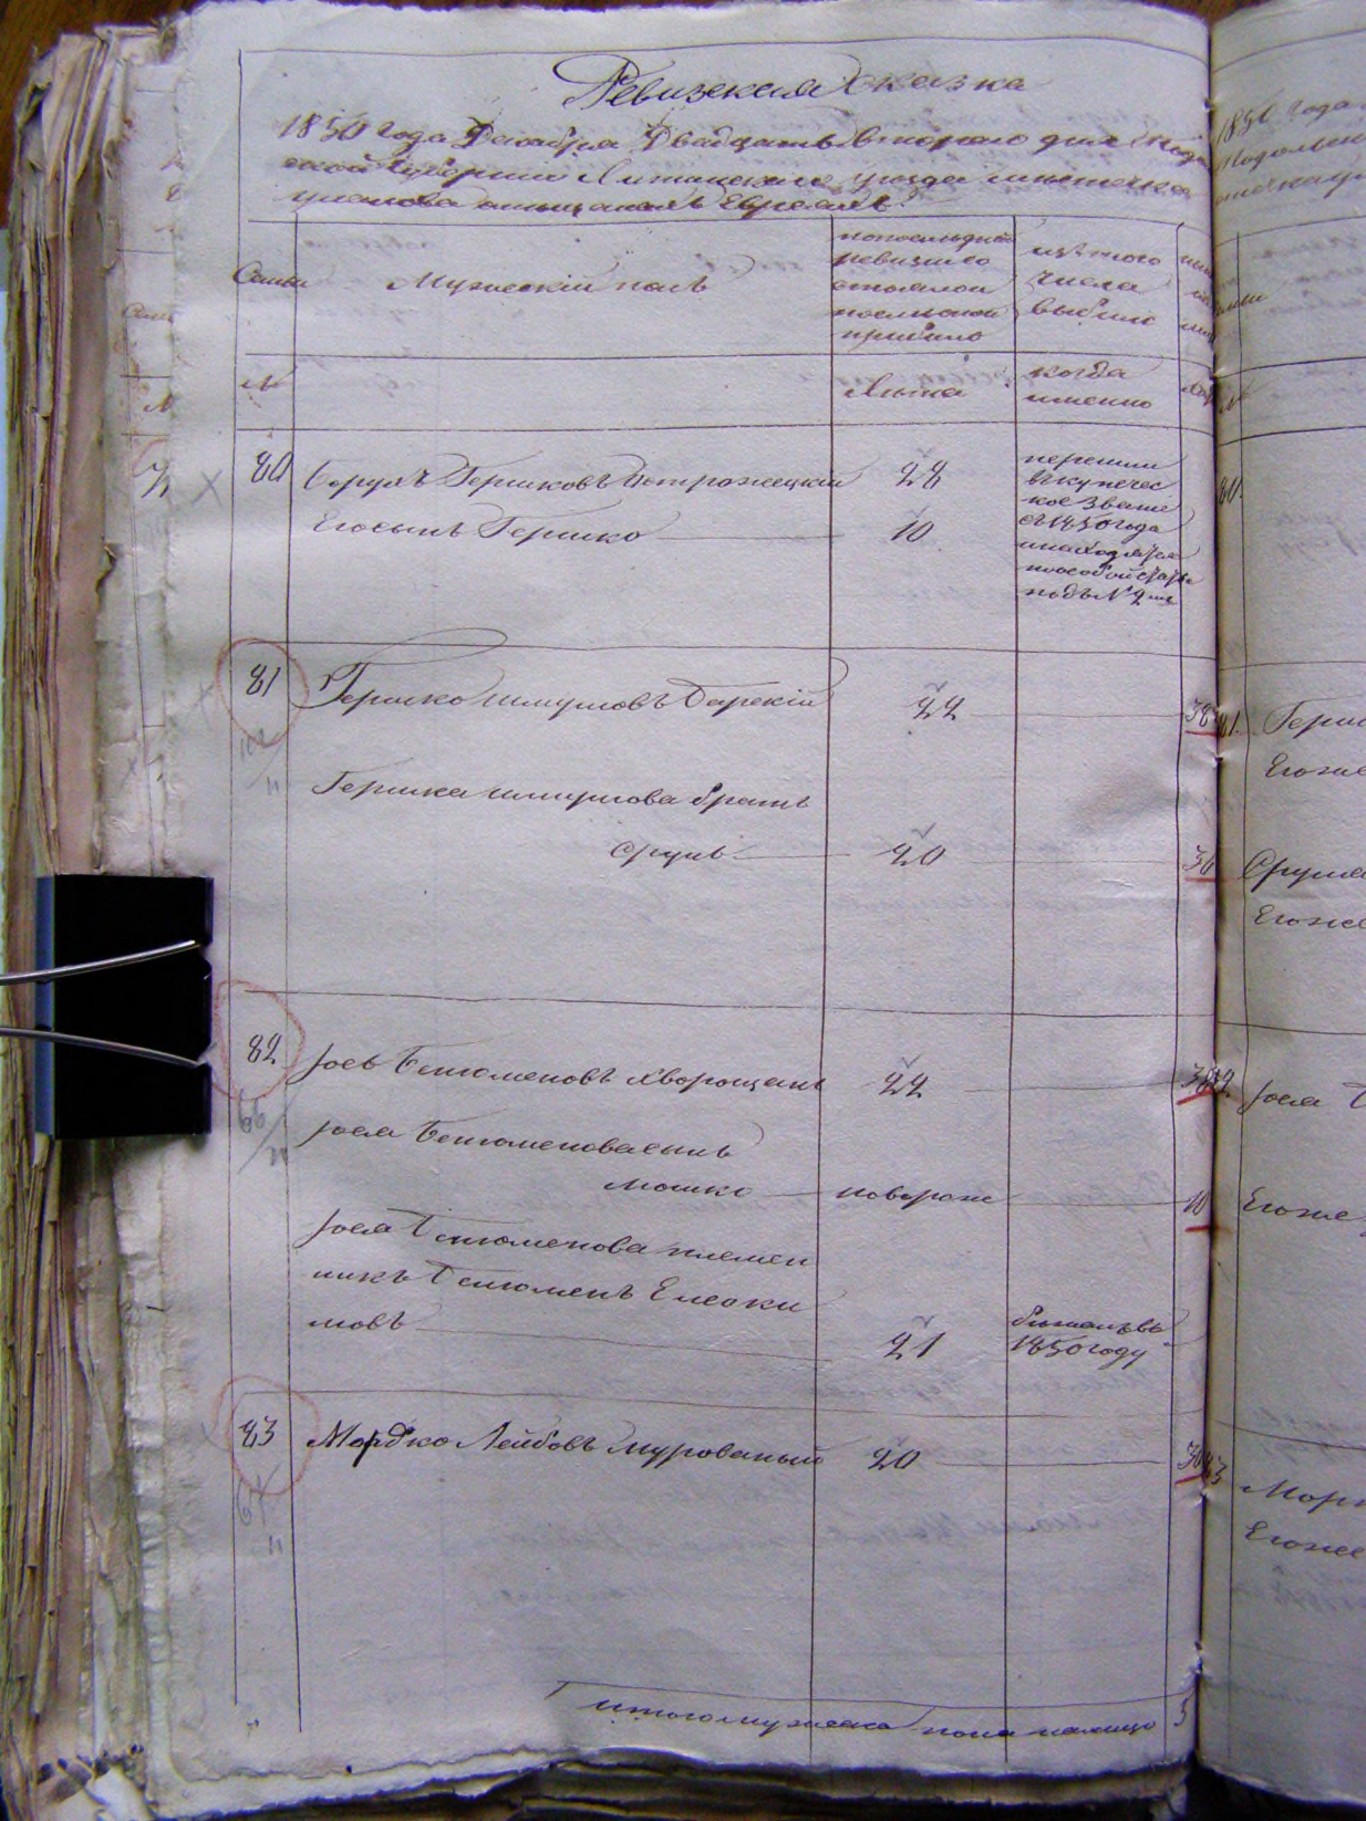 Ревизская Сказка
1850 года Декабря Двадцать второго дня Подо
ской Губернии Литинского уезда местечка
Уланова о мещанахъ Евреяхъ
Семьи
Мужескій полъ
по последней
ревизіи со
стояло и
после оной
прибыло
изъ того
числа
выбыло
№
Лета
когда
именно
80
Борухъ Гершковъ Острожецкій
28
перешли
въ купечес
кое Званіе
съ 1850 года
и находятся
по особой сказке
подъ № 2мъ
Его сынъ Гершко
10
81
Гершко Шмулювъ Барскій
22
38
Гершка Шмулова братъ
Сруль
20
36
82
Іосъ Бенюменовъ Хворощанъ
22
38
Іоса Бенюменова сынъ
Мошко
новорож
10
Іоса Бенюменова племен
никъ Бенюменъ Елеоки
мовъ
21
бежалъ въ
1850 году
83
Мордко Лейбовъ Мурованый
20
36
Итого мужеска пола налицо
5